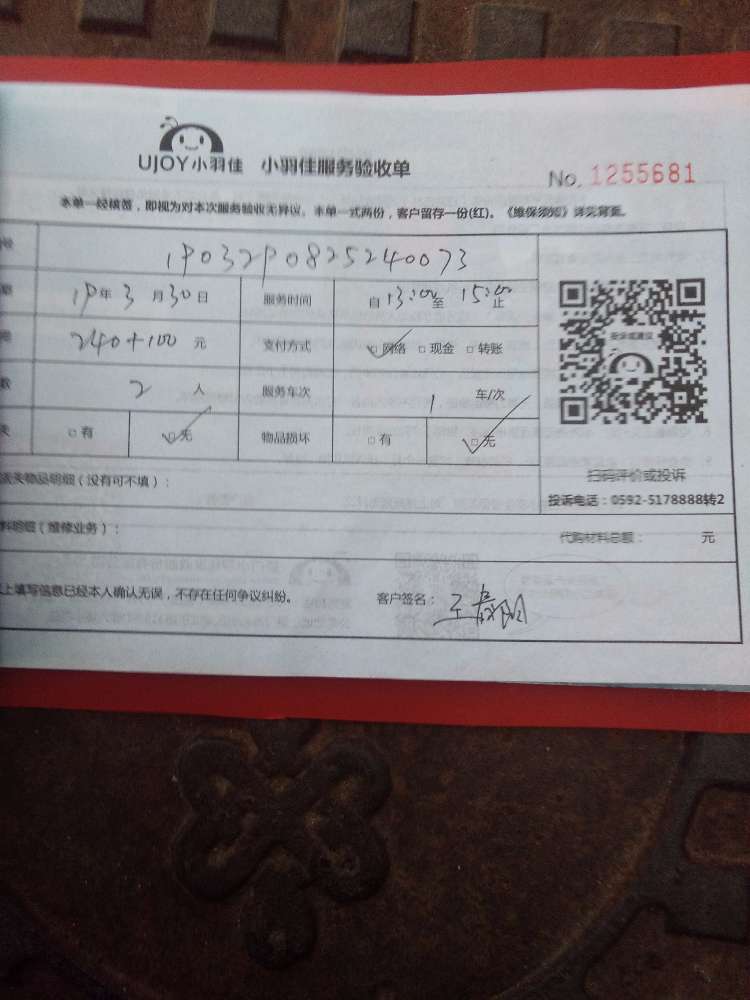 UJOY小羽佳 小羽佳服务验收单
No. 1255681
本单一经核签，即视为对本次服务验收无异议。本单一式两份，客户留存一份(红)。《维保须知》详见背面。
19032908252400 73
19年3月30日 服务时间 自13:00至15:00止
240+100元 支付方式 ☑网络 □现金 □转账
数 2人 服务车次 1 车/次
失 □有 ☑无 物品损坏 □有 ☑无
投诉或建议
扫码评价或投诉
投诉电话：0592-5178888转2
丢失物品明细（没有可不填）：
料明细（维修业务）： 代购材料总额： 元
上填写信息已经本人确认无误，不存在任何争议纠纷。 客户签名：